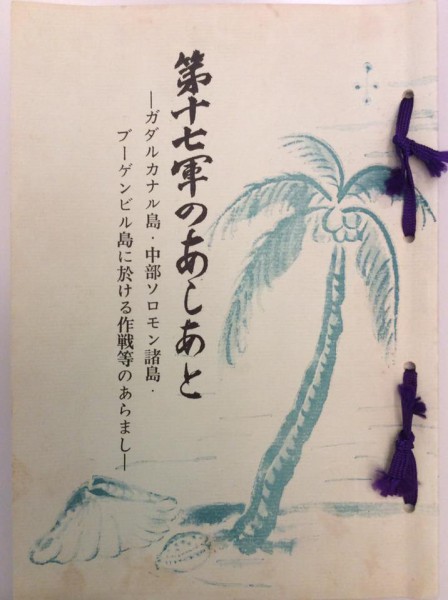 第十七軍のあしあと
―ガダルカナル島・中部ソロモン諸島・
ブーゲンビル島に於ける作戦等のあらまし―